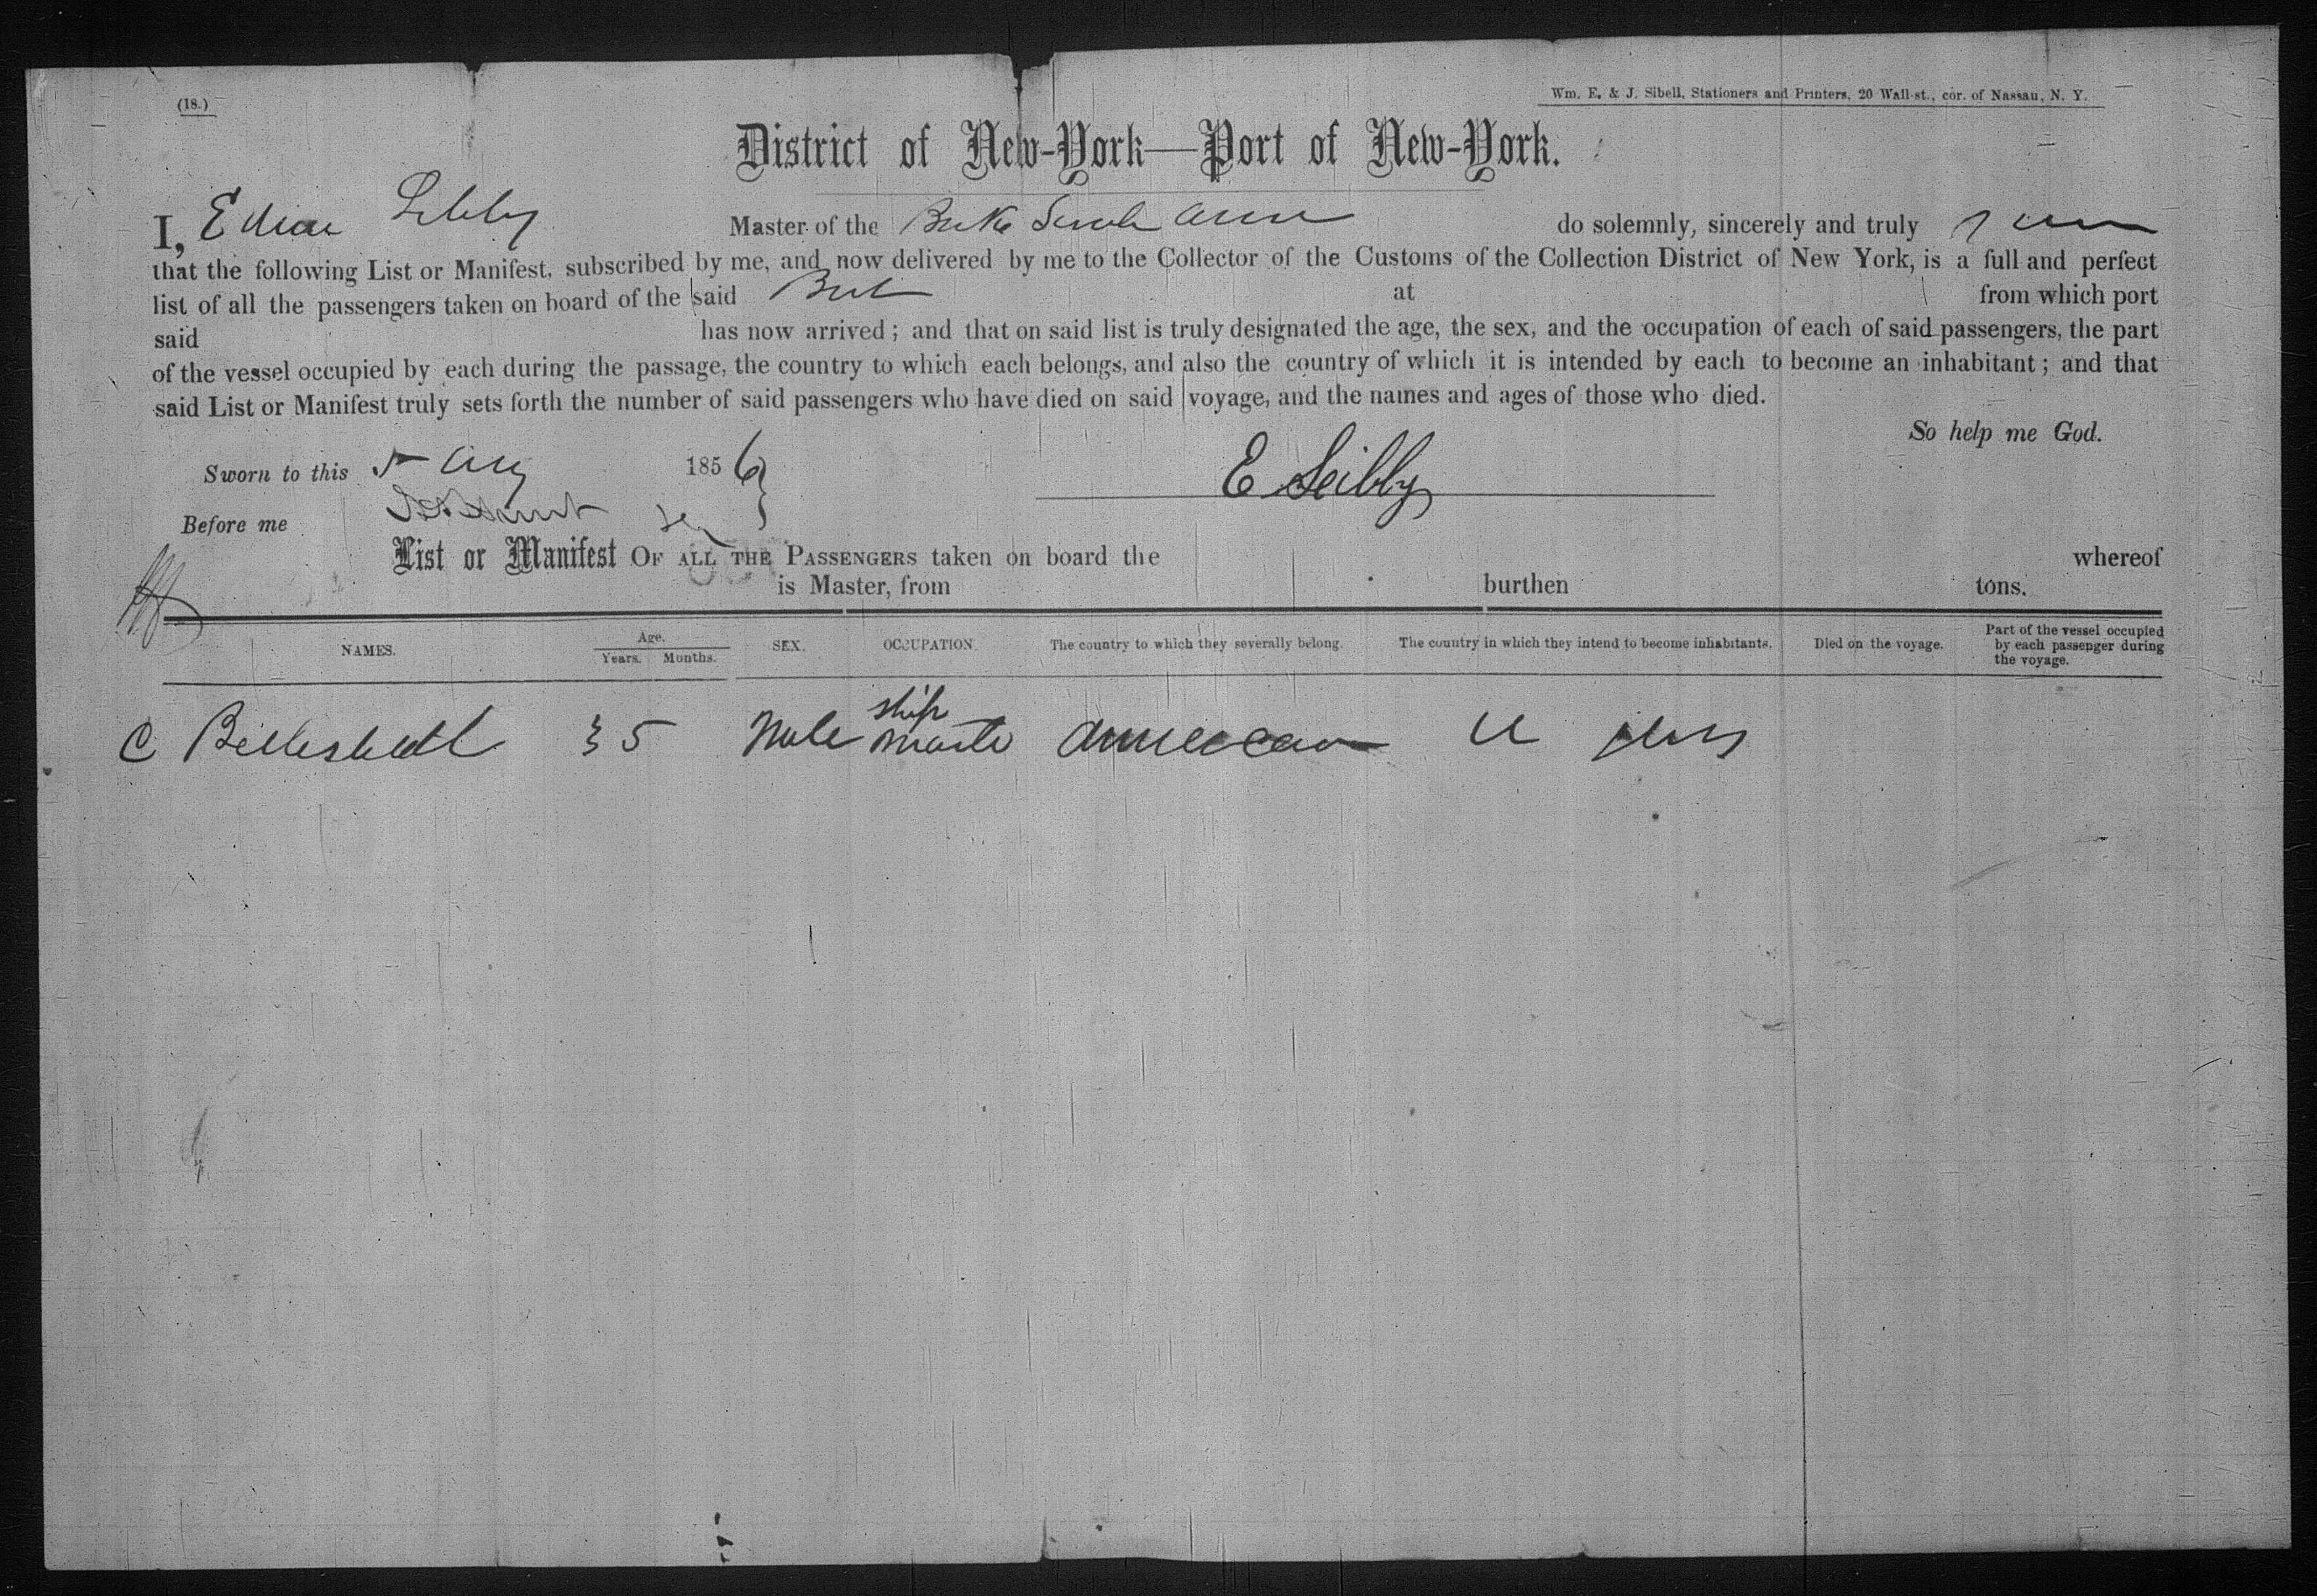 (18.)
Wm. E. & J. Sibell, Stationers and Printers, 20 Wall-st., cor. of Nassau, N. Y.
District of New-York—Port of New-York.
I, Libby Master of the Sarah Ann do solemnly, sincerely and truly
that the following List or Manifest, subscribed by me, and now delivered by me to the Collector of the Customs of the Collection District of New York, is a full and perfect
list of all the passengers taken on board of the said at from which port
said has now arrived; and that on said list is truly designated the age, the sex, and the occupation of each of said passengers, the part
of the vessel occupied by each during the passage, the country to which each belongs, and also the country of which it is intended by each to become an inhabitant; and that
said List or Manifest truly sets forth the number of said passengers who have died on said voyage, and the names and ages of those who died.
So help me God.
Sworn to this 5 Aug 1856
E Libby
Before me
List or Manifest OF ALL THE PASSENGERS taken on board the whereof
is Master, from burthen tons.
NAMES. Age. Years. Months. SEX. OCCUPATION. The country to which they severally belong. The country in which they intend to become inhabitants. Died on the voyage. Part of the vessel occupied by each passenger during the voyage.
C 35 Male ship American U